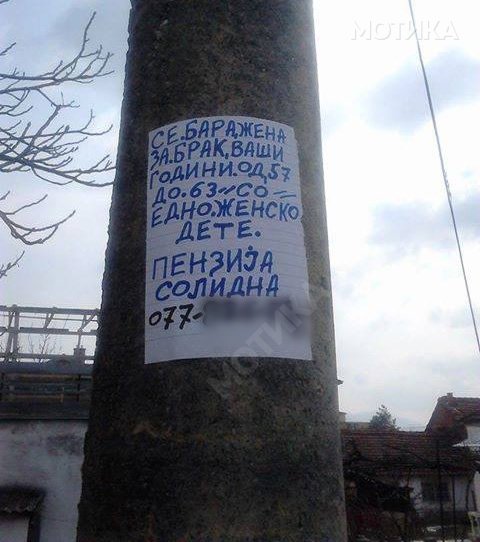 МОТИКА
СЕ.БАРА,ЖЕНА
ЗА.БРАК,ВАШИ
ГОДИНИ.ОД,57
ДО.63〃СО=
ЕДНО.ЖЕНСКО
ДЕТЕ.
ПЕНЗИЈА
СОЛИДНА
077-
МОТИКА